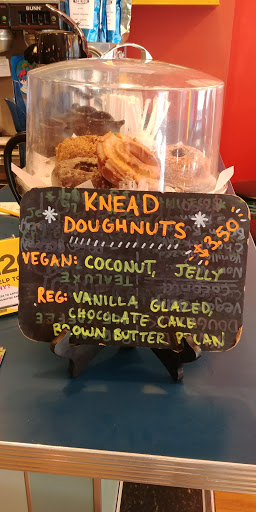 BUNN
KNEAD
DOUGHNUTS
$3.50
VEGAN: COCONUT, JELLY
REG: VANILLA GLAZED,
CHOCOLATE CAKE
BROWN BUTTER PECAN